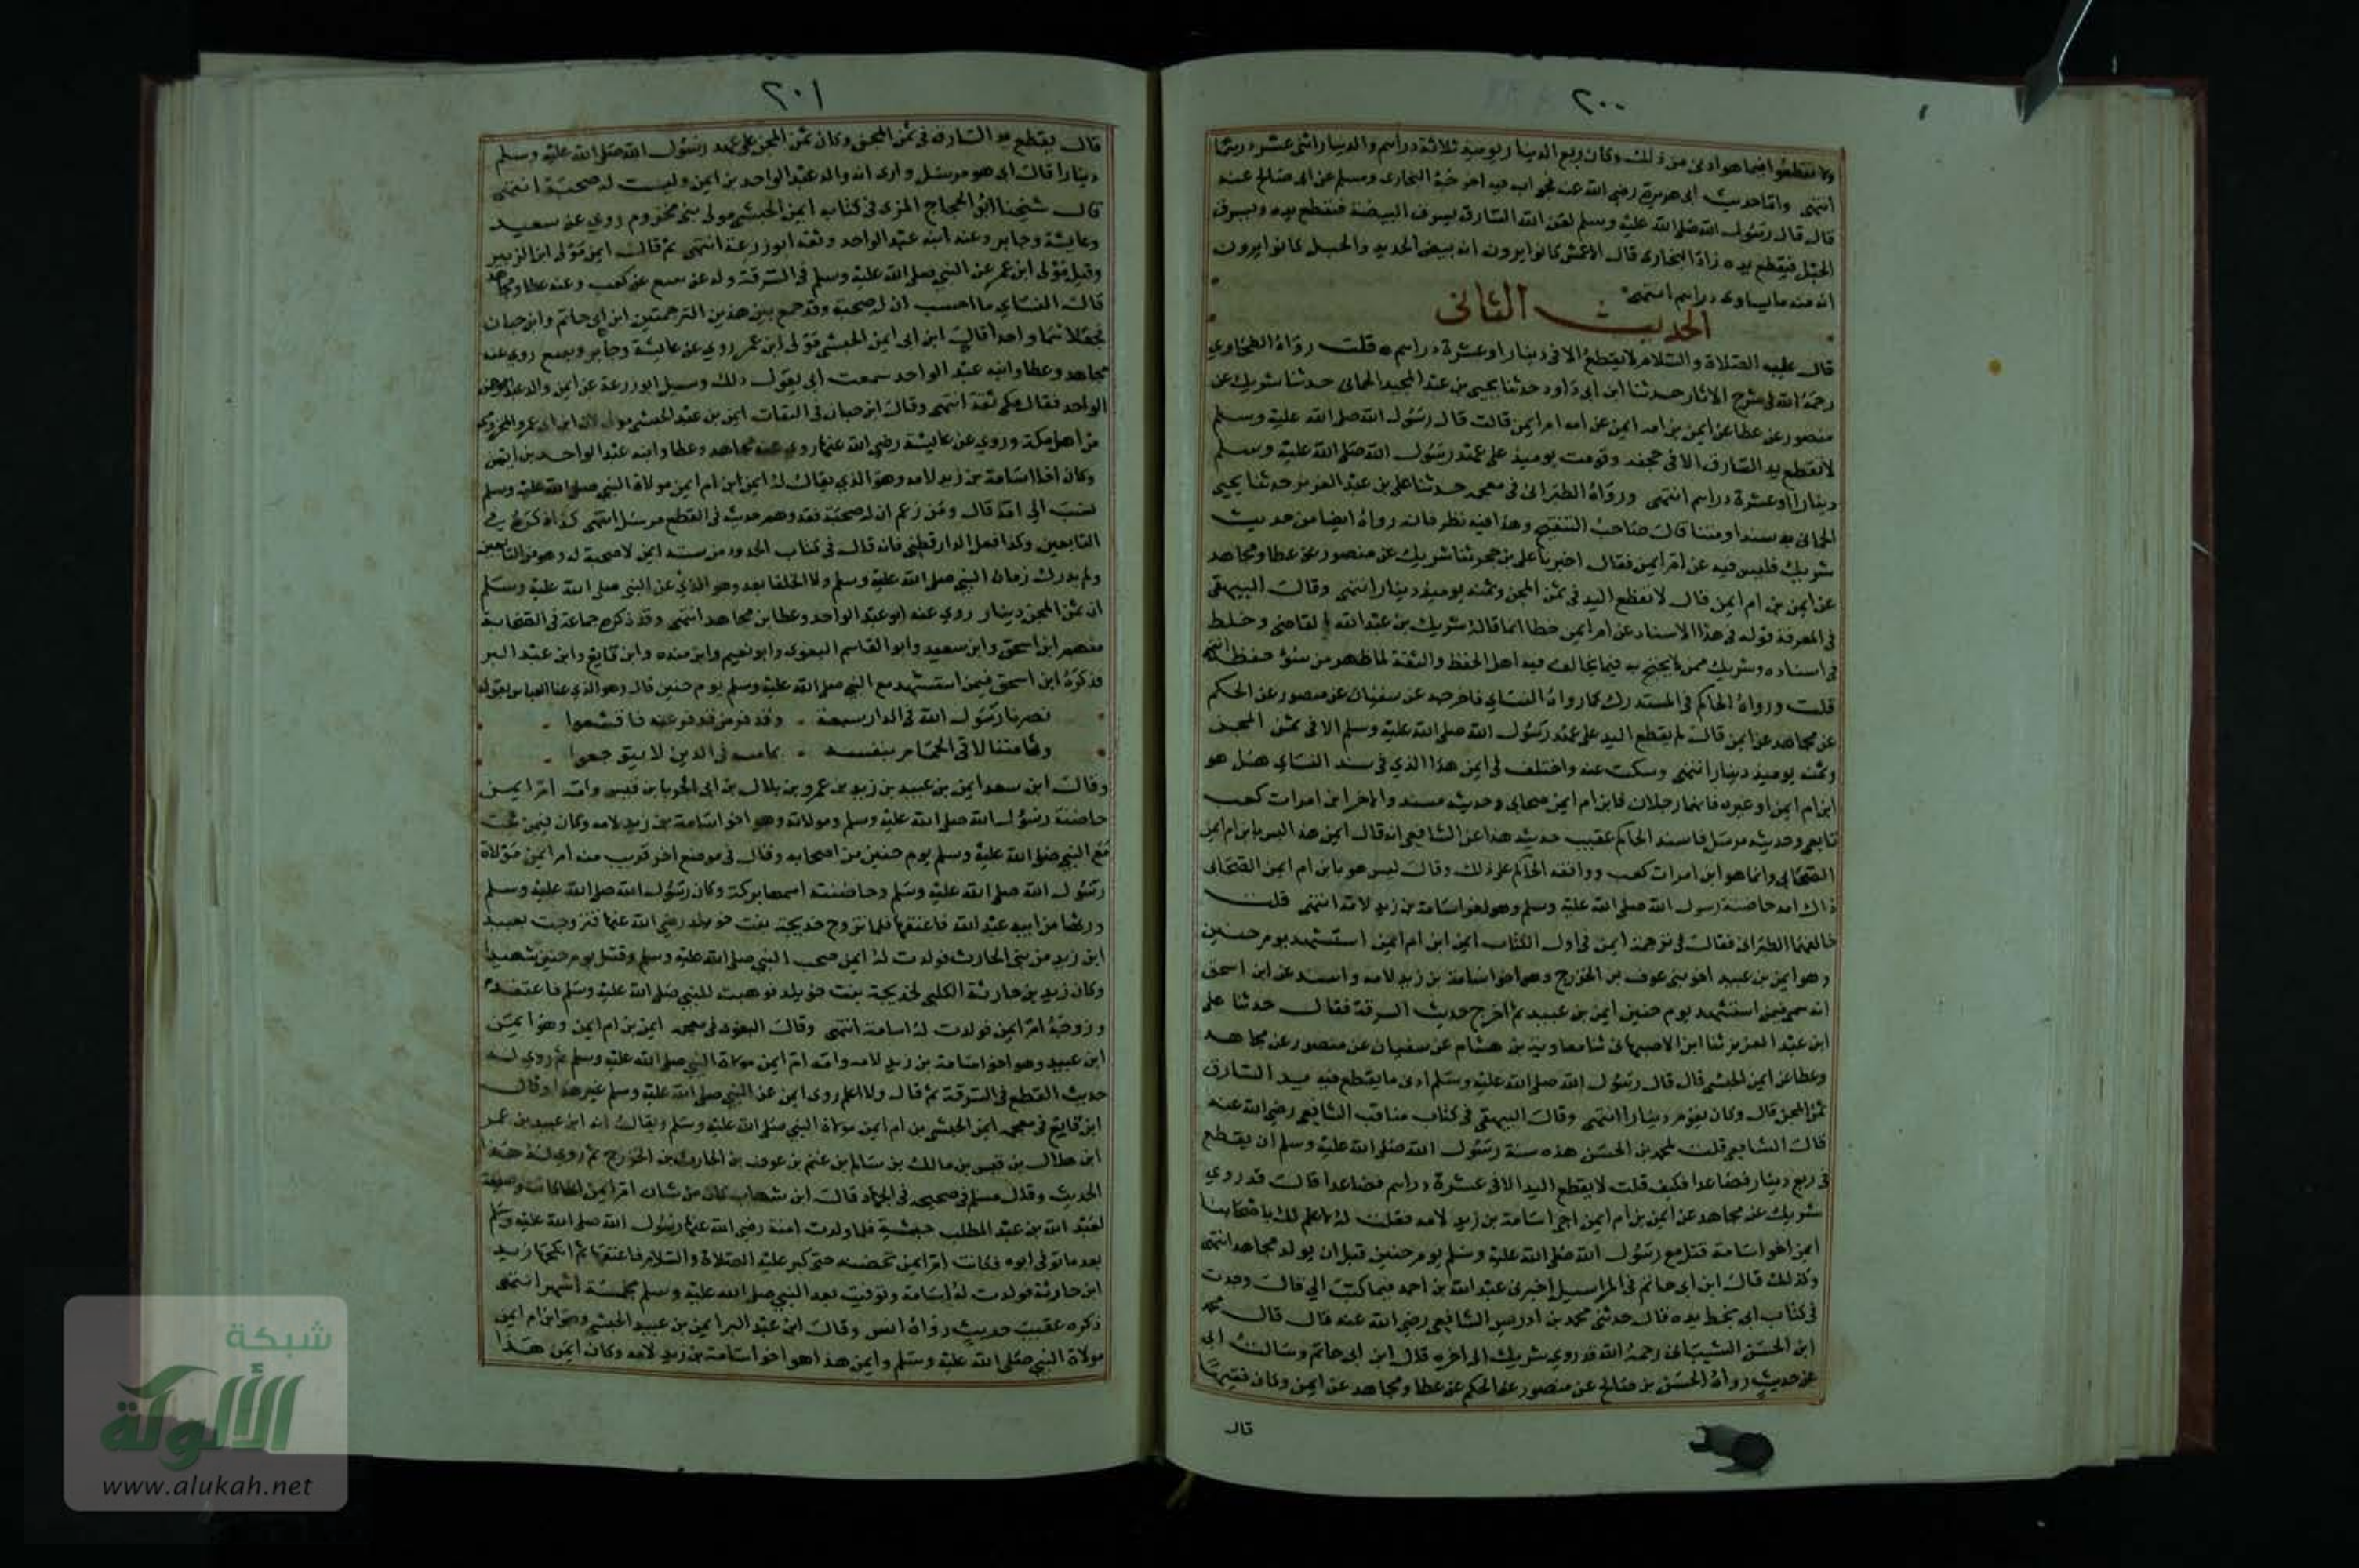 ٢٠٠
ولا تقطعوا فيما هو ادنى من ذلك وكان ربع الدينار يوميذ ثلاثة دراهم والدينار اثنى عشر درهما
انتهى واما حديث ابى هريرة رضى الله عنه فجوابه فيه اخرجه البخارى ومسلم عن ابى صالح عنه
قال قال رسول الله صلى الله عليه وسلم لعن الله السارق يسرق البيضة فتقطع يده ويسرق
الحبل فيقطع يده زاد البخارى قال الاعمش كانوا يرون انه بيض الحديد والحبل كانوا يرون
انه منه ما يساوى دراهم انتهى
الحديث الثانى
قال عليه الصلاة والسلام لا يقطع الا فى دينار او عشرة دراهم قلت رواه الطحاوي
رحمه الله فى شرح الاثار حدثنا ابن ابى داود حدثنا يحيى بن عبد المجيد الحمانى حدثنا شريك عن
منصور عن عطا عن ايمن بن ام ايمن عن امه ام ايمن قالت قال رسول الله صلى الله عليه وسلم
لا تقطع يد السارق الا فى جحفه وقومت يوميذ على عهد رسول الله صلى الله عليه وسلم
دينارا او عشرة دراهم انتهى ورواه الطبرانى فى معجمه حدثنا على بن عبد العزيز حدثنا يحيى
الحمانى به سندا ومتنا قال صاحب التنقيح وهذا فيه نظر فانه رواه ايضا من حديث
شريك فليس فيه عن ام ايمن فقال اخبرنا على بن حجر ثنا شريك عن منصور عن عطا ومجاهد
عن ايمن بن ام ايمن قال لا تقطع اليد فى ثمن المجن وثمنه يوميذ دينار انتهى وقال البيهقى
فى المعرفة قوله فى هذا الاسناد عن ام ايمن خطا انما قاله شريك بن عبد الله القاضى وخلط
فى اسناده وشريك ممن لا يحتج به فيما يخالف فيه اهل الحفظ والثقة لما ظهر من سؤ حفظه انتهى
قلت ورواه الحاكم فى المستدرك كما رواه النساي فاخرجه عن سفيان عن منصور عن الحكم
عن مجاهد عن ايمن قال لم يقطع اليد على عهد رسول الله صلى الله عليه وسلم الا فى ثمن المجن
وثمنه يوميذ دينار انتهى وسكت عنه واختلف فى ايمن هذا الذي فى سند النساي هل هو
ابن ام ايمن او غيره فانهما رجلان فابن ام ايمن صحابى وحديثه مسند والاخر ابن امرات كعب
تابعى وحديثه مرسل فاسند الحاكم عقيب حديثه هذا عن الشافعى انه قال ايمن هذا ليس بابن ام ايمن
الصحابى وانما هو ابن امرات كعب ووافقه الحاكم على ذلك وقال ليس هو بابن ام ايمن الصحابى
ذاك امه حاضنة رسول الله صلى الله عليه وسلم وهو اخو اسامة بن زيد لامه انتهى قلت
خالفهما الطبرانى فقال فى ترجمة ايمن فى اول الكتاب ايمن ابن ام ايمن استشهد يوم حنين
وهو ايمن بن عبيد اخو بنى عوف بن الخزرج وهو اخو اسامة بن زيد لامه واسند عن ابن اسحق
انه سمى فيمن استشهد يوم حنين ايمن بن عبيد ثم اخرج حديث السرقة فقال حدثنا على
ابن عبد العزيز ثنا ابن الاصبهانى ثنا معاوية بن هشام عن سفيان عن منصور عن مجاهد
وعطا عن ايمن الحبشى قال قال رسول الله صلى الله عليه وسلم ادنى ما يقطع فيه يد السارق
ثمن المجن قال وكان يقوم دينارا انتهى وقال البيهقى فى كتاب مناقب الشافعى رضى الله عنه
قال الشافعى قلت لمحمد بن الحسن هذه سنة رسول الله صلى الله عليه وسلم ان يقطع
فى ربع دينار فصاعدا فكيف قلت لا يقطع اليد الا فى عشرة دراهم فصاعدا قالت قد روي
شريك عن مجاهد عن ايمن بن ام ايمن اخى اسامة بن زيد لامه فقلت له لا علم لك باصحابنا
ايمن اخو اسامة قتل مع رسول الله صلى الله عليه وسلم يوم حنين قبل ان يولد مجاهد انتهى
وكذلك قال ابن ابى حاتم فى المراسيل اخبرنى عبد الله بن احمد فيما كتب الى قال وجدت
فى كتاب ابى بخط يده قال حدثنى محمد بن ادريس الشافعى رضى الله عنه قال قال محمد
ابن الحسن الشيبانى رحمه الله قد روي شريك الى اخره قال ابن ابى حاتم وسالت ابى
عن حديث رواه الحسن بن صالح عن منصور عن الحكم عن عطا ومجاهد عن ايمن وكان فقيها
قال
٢٠١
قال يقطع يد السارق فى ثمن المجن وكان ثمن المجن على عهد رسول الله صلى الله عليه وسلم
دينارا قال ابى هو مرسل وارى انه والد عبد الواحد بن ايمن وليست له صحبة انتهى
قال شيخنا ابو الحجاج المزى فى كتابه ايمن الحبشى مولى بنى مخزوم روي عن سعيد
وعايشة وجابر وعنه ابنه عبد الواحد وثقه ابو زرعة انتهى ثم قال ايمن مولى ابن الزبير
وقيل مولى ابن عمر عن النبى صلى الله عليه وسلم فى السرقة وله عن تبيع عن كعب وعنه عطا ومجاهد
قال النساي ما احسب ان له صحبة وقد جمع بين هذين الترجمتين ابن ابى حاتم وابن حبان
فجعلاهما واحدا قال ابن ابى ايمن الحبشى مولى ابن عمر روي عن عايشة وجابر وتبيع روي عنه
مجاهد وعطا وابنه عبد الواحد سمعت ابى يقول ذلك وسيل ابو زرعة عن ايمن والد عبد
الواحد فقال مكى ثقة انتهى وقال ابن حبان فى الثقات ايمن بن عبيد الحبشى مولى ابن ابى عمرو المخزومى
من اهل مكة وروي عن عايشة رضى الله عنها روي عنه مجاهد وعطا وابنه عبد الواحد بن ايمن
وكان اخا اسامة بن زيد لامه وهو الذي يقال له ايمن ابن ام ايمن مولاة النبى صلى الله عليه وسلم
نسب الى امه قال ومن زعم ان له صحبة فقد وهم حديثه فى القطع مرسل انتهى كذا ذكره فى
التابعين وكذا فعل الدارقطنى فانه قال فى كتاب الحدود من سننه ايمن لا صحبة له وهو من التابعين
ولم يدرك زمان النبى صلى الله عليه وسلم ولا الخلفا بعده وهو الذي عن النبى صلى الله عليه وسلم
ان ثمن المجن دينار روي عنه ابو عبد الواحد وعطا بن مجاهد انتهى وقد ذكره جماعة فى الصحابة
منهم ابن اسحق وابن سعيد وابو القاسم البغوى وابو نعيم وابن منده وابن قانع وابن عبد البر
فذكره ابن اسحق فيمن استشهد مع النبى صلى الله عليه وسلم يوم حنين قال وهو الذي عنا العباس بقوله
نصرنا رسول الله فى الدار سبعة وقد فر من قد فر عنه فاقشعوا
وثامننا لاقى الحمام بنفسه بما مسه فى الدين لا يتوجعوا
وقال ابن سعد ايمن بن عبيد بن زيد بن عمرو بن بلال بن ابى الحربا بن قيس وامه ام ايمن
حاضنة رسول الله صلى الله عليه وسلم ومولاته وهو اخو اسامة بن زيد لامه وكان فيمن ثبت
مع النبى صلى الله عليه وسلم يوم حنين من اصحابه وقال فى موضع اخر قريب منه ام ايمن مولاة
رسول الله صلى الله عليه وسلم وحاضنته اسمها بركة وكان رسول الله صلى الله عليه وسلم
ورثها من ابيه عبد الله فاعتقها فلما تزوج خديجة بنت خويلد رضى الله عنها فتزوجت بعبيد
ابن زيد من بنى الحارث فولدت له ايمن صحب النبى صلى الله عليه وسلم وقتل يوم حنين شهيدا
وكان زيد بن حارثة الكلبى لخديجة بنت خويلد فوهبت للنبى صلى الله عليه وسلم فاعتقه
وزوجه ام ايمن فولدت له اسامة انتهى وقال البغوى فى معجمه ايمن بن ام ايمن وهو ايمن
ابن عبيد وهو اخو اسامة بن زيد لامه وامه ام ايمن مولاة النبى صلى الله عليه وسلم ثم روي له
حديث القطع فى السرقة ثم قال ولا اعلم روى ايمن عن النبى صلى الله عليه وسلم غير هذا وقال
ابن قانع فى معجمه ايمن الحبشى بن ام ايمن مولاة النبى صلى الله عليه وسلم ويقال انه ابن عبيد بن عمر
ابن هلال بن قيس بن مالك بن سالم بن غنم بن عوف بن الحارث بن الخزرج ثم روي له هذا
الحديث وقال مسلم فى صحيحه فى الجهاد قال ابن شهاب كان من شان ام ايمن انها كانت وصيفة
لعبد الله بن عبد المطلب حبشية فلما ولدت امنة رضى الله عنها رسول الله صلى الله عليه وسلم
بعد ما توفى ابوه فكانت ام ايمن تحضنه حتى كبر عليه الصلاة والسلام فاعتقها ثم انكحها زيد
ابن حارثة فولدت له اسامة وتوفيت بعد النبى صلى الله عليه وسلم بخمسة اشهر انتهى
ذكره عقيب حديث رواه انس وقال ابن عبد البر ايمن بن عبيد الحبشى وهو ابن ام ايمن
مولاة النبى صلى الله عليه وسلم وايمن هذا هو اخو اسامة بن زيد لامه وكان ايمن هذا
شبكة
الألوكة
www.alukah.net